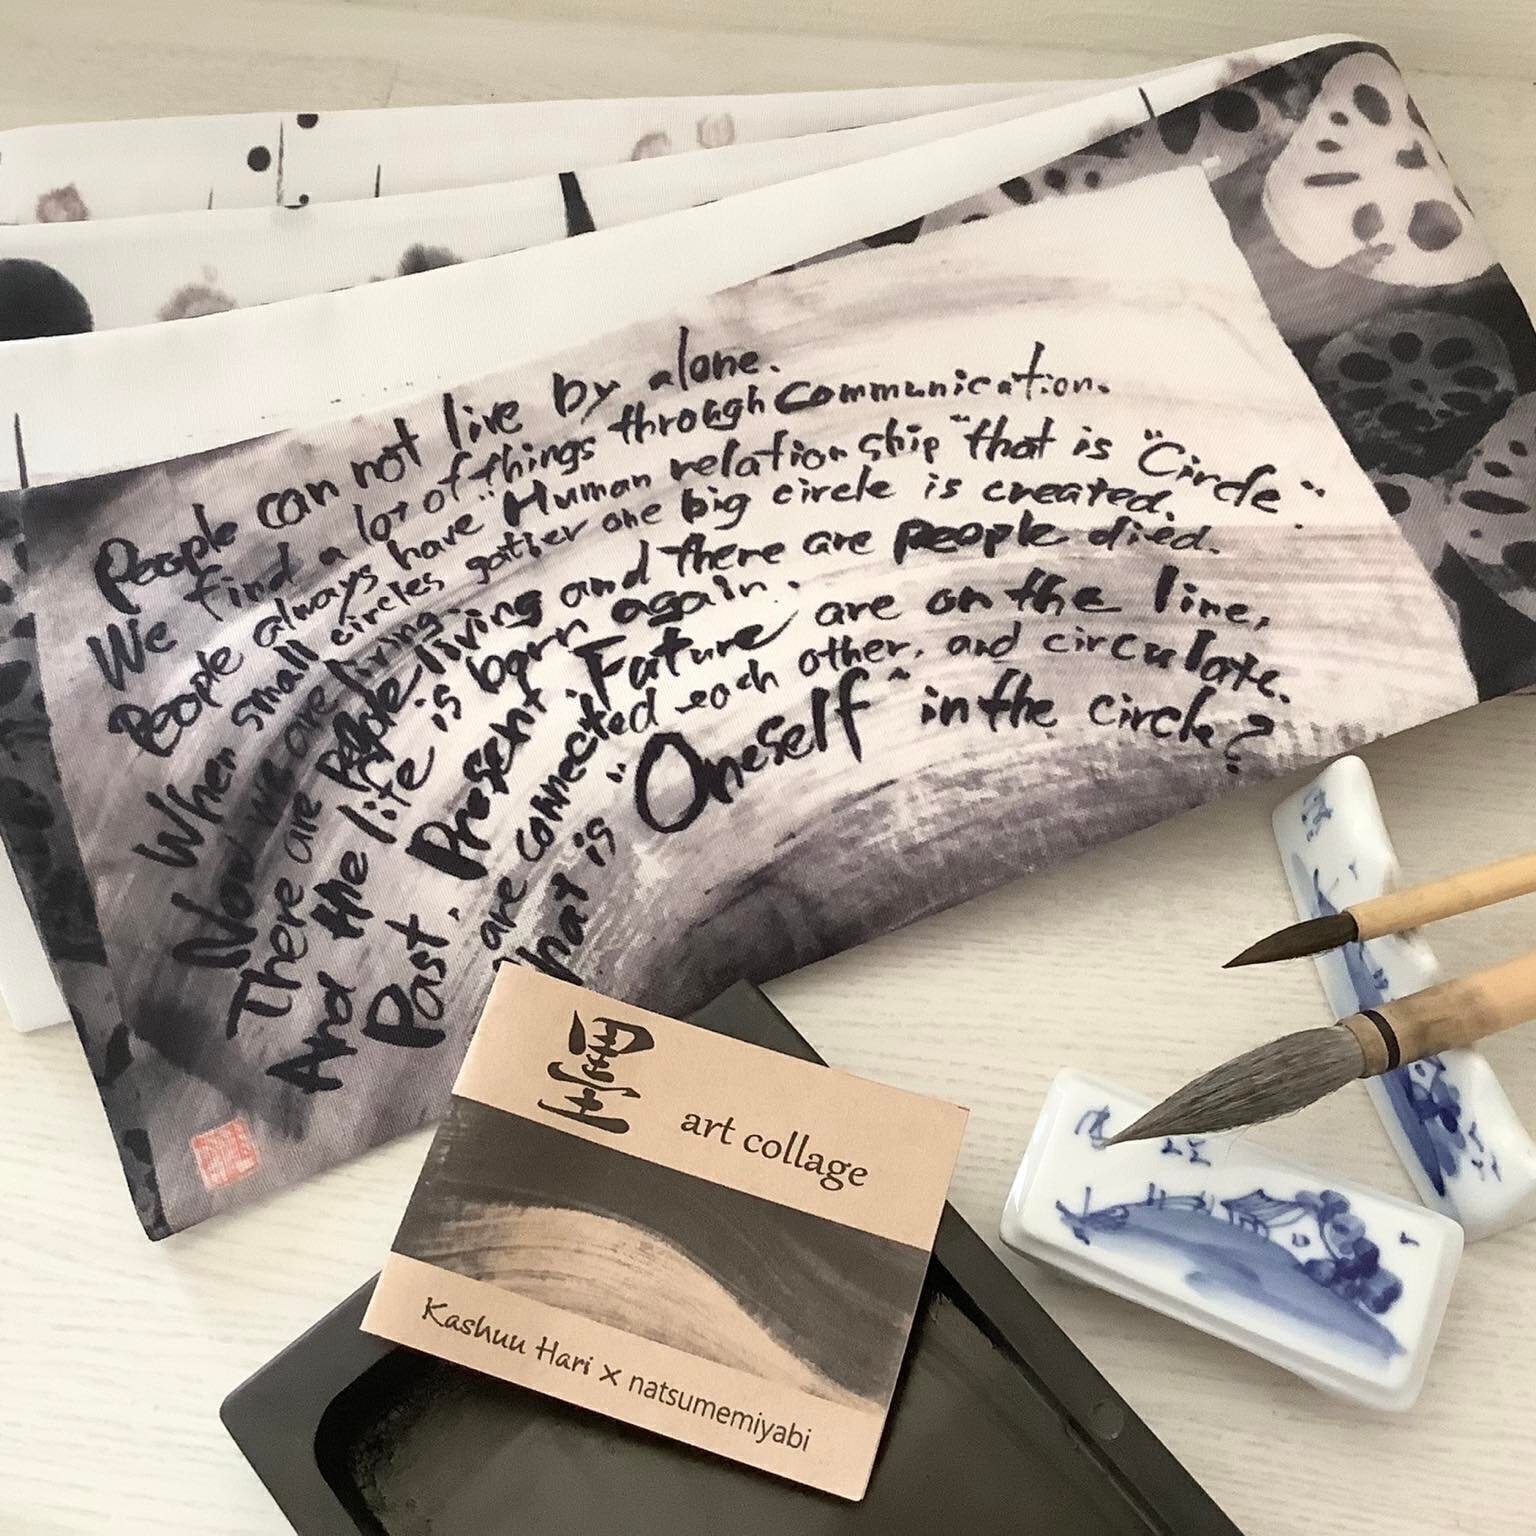 People can not live by alone.
We find a lot of things through communication.
People always have "Human relation ship" that is "Circle".
When small circles gather one big circle is created.
Now we are living.
There are people living and there are people died.
And the life is born again.
Past. Present. Future are on the line,
are connected each other, and circulate.
What is "Oneself" in the circle?
art collage
Kashuu Hari × natsumemiyabi